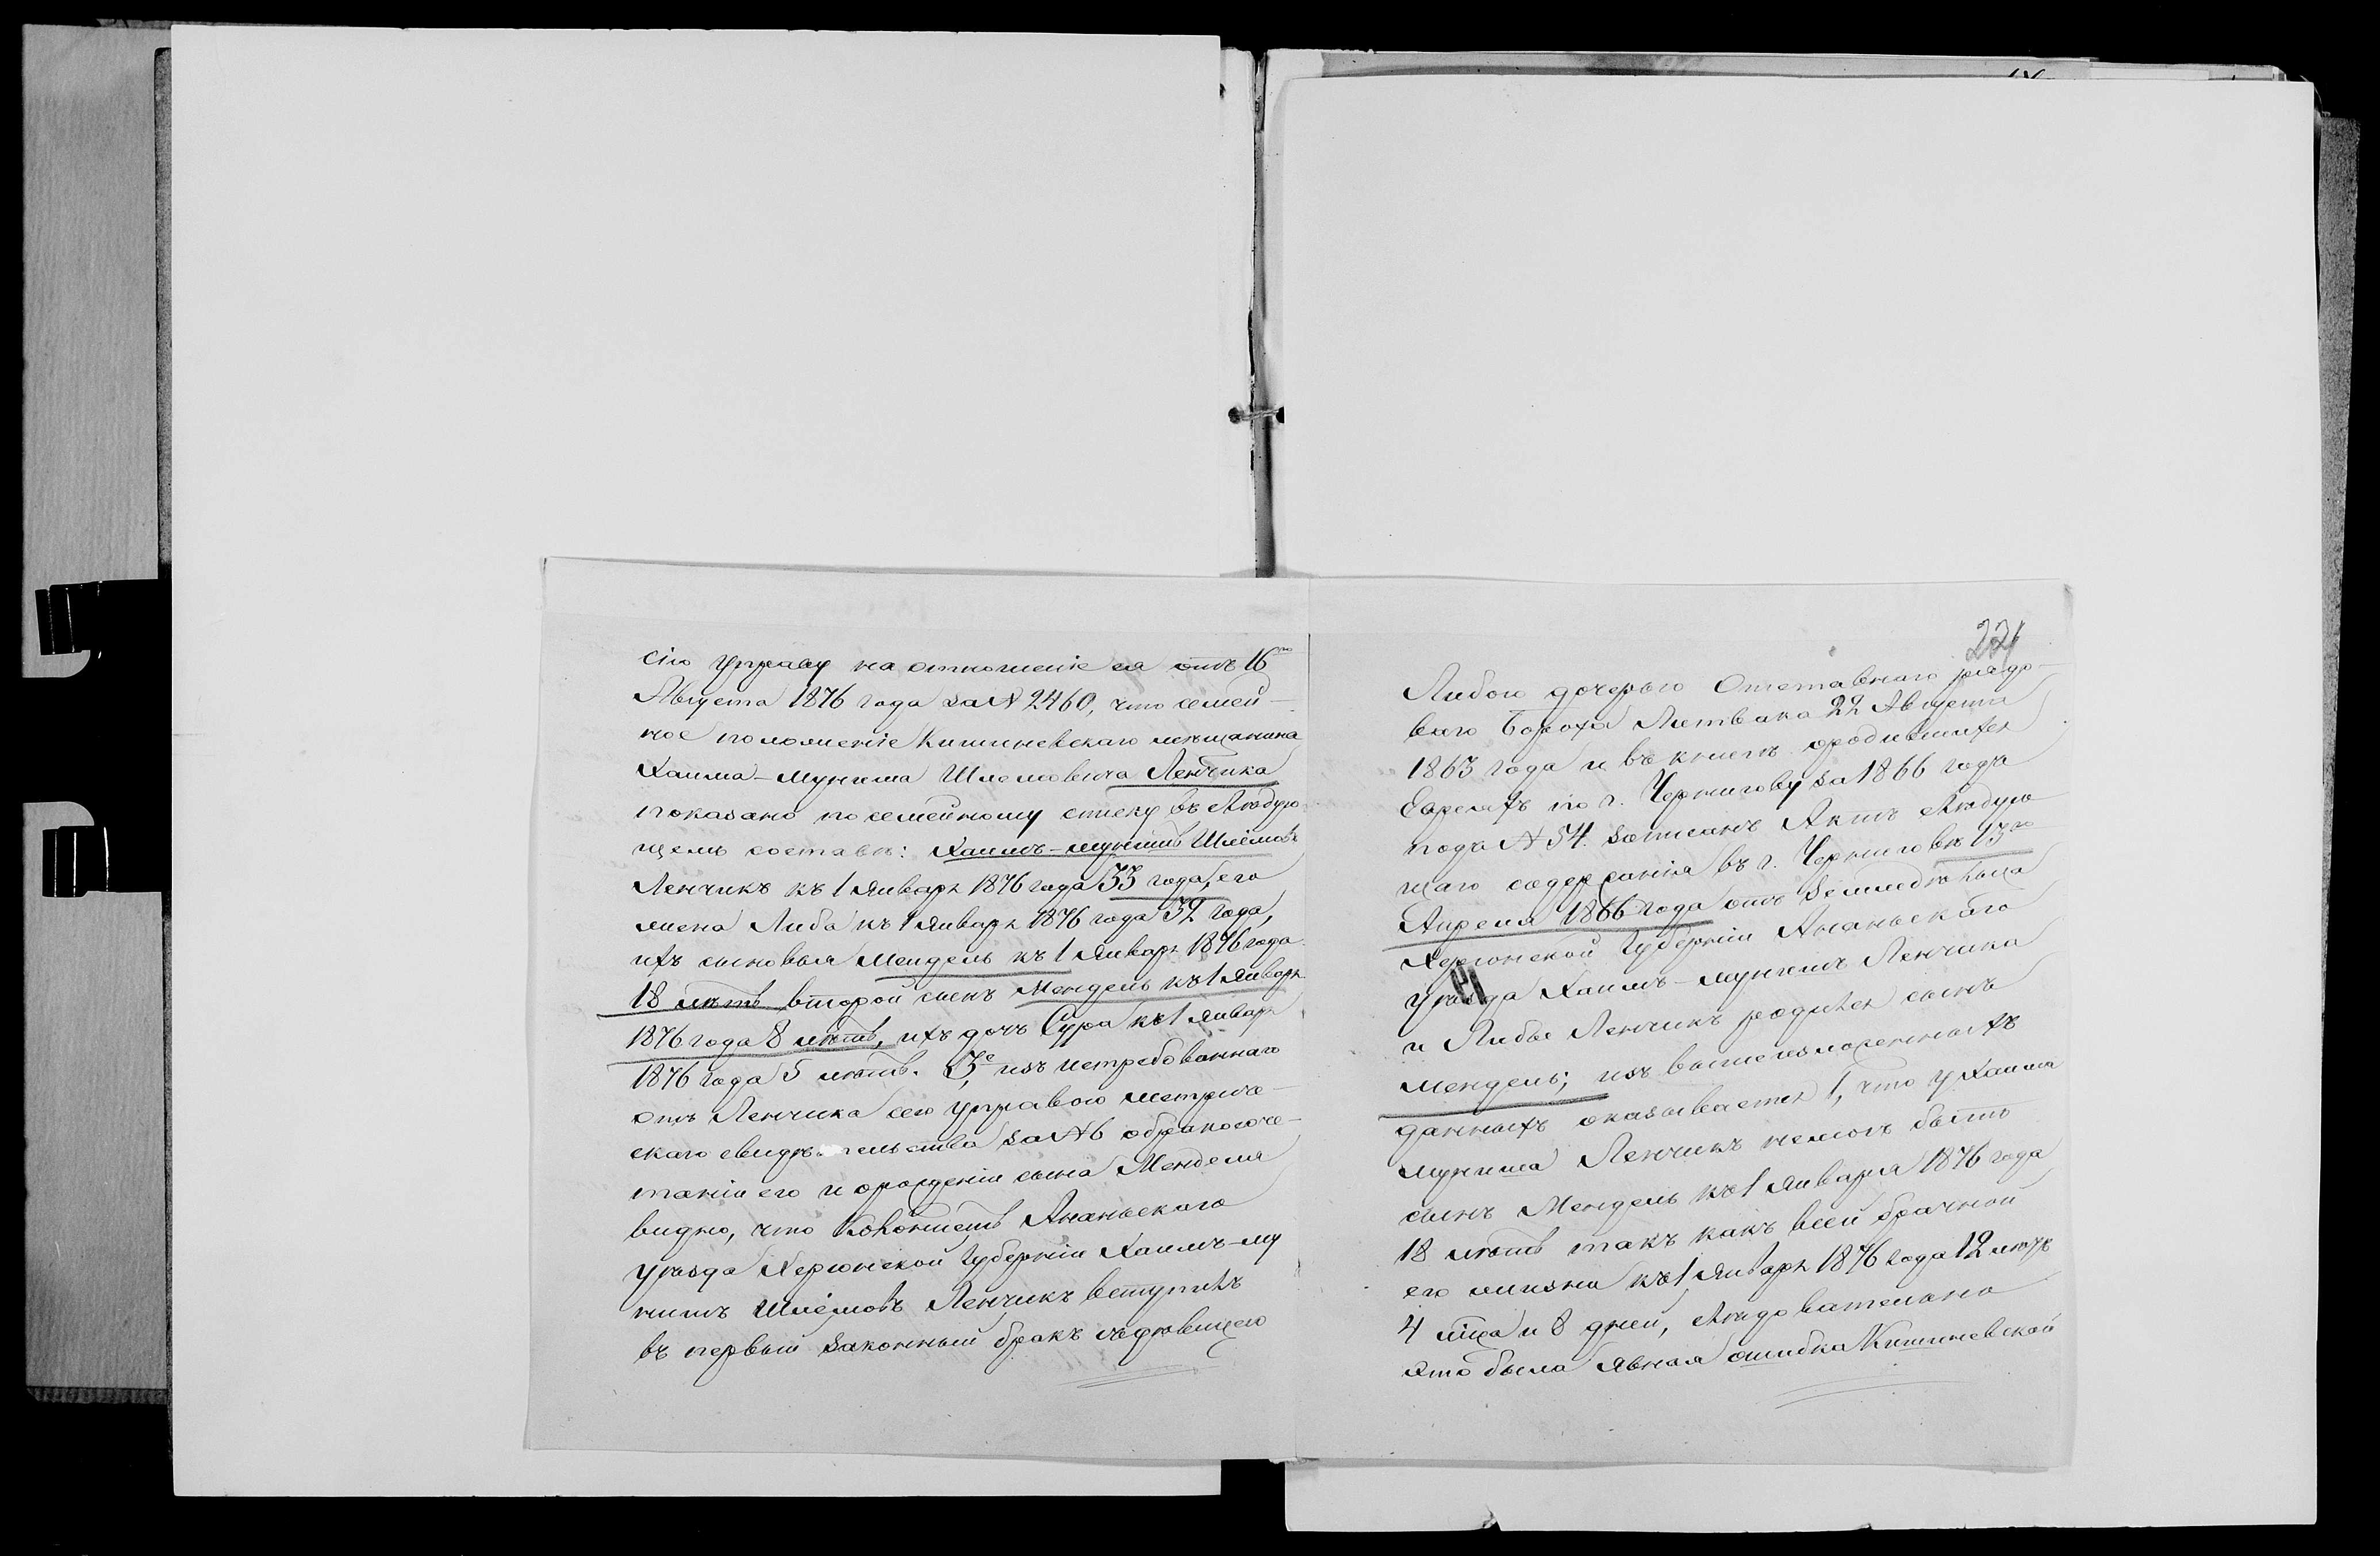 сію Управу на отношеніе ея отъ 16го
Августа 1876 года за № 2460, что семей-
ное положеніе Кишиневскаго мѣщанина
Хаима-Муниша Шлемовича Ленчика
показано по семейному списку въ слѣдую-
щемъ составѣ: Хаимъ-мунишъ Шлемовъ
Ленчикъ къ 1 Января 1876 года 33 года, его
жена Либа къ 1 Января 1876 года 32 года,
ихъ сыновья Мендель къ 1 Января 1876 года
18 лѣтъ второй сынъ Мендель къ 1 Января
1876 года 8 лѣтъ, ихъ дочь Сура къ 1 Января
1876 года 5 лѣтъ. 3е, изъ истребованнаго
отъ Ленчика сею управою метриче-
скаго свидѣтельства за № 6 о бракосоче-
таніи его и о рожденіи сына Менделя
видно, что Колонистъ Ананьевскаго
уѣзда Херсонской Губерніи Хаимъ-му
нишъ Шлемовъ Ленчикъ вступилъ
въ первый законный бракъ съ дѣвицею
221
Либою дочерью Отставнаго рядо-
ваго Бороха Литвака 22 Августа
1863 года и въ книгѣ о родившихся
Евреяхъ по г. Чернигову за 1866 годъ
подъ № 54. записанъ Актъ слѣдую
щаго содержанія въ г. Черниговѣ 13го
Апреля 1866 года отъ земледѣльца
Херсонской Губерніи Ананьевскаго
уѣзда Хаимъ-мунишъ Ленчика
и Либы Ленчикъ родился сынъ
Мендель; изъ вышеизложенныхъ
данныхъ оказывается 1, что у Хаима
муниша Ленчикъ не могъ быть
сынъ Мендель къ 1 Января 1876 года
18 лѣтъ такъ какъ всей брачной
его жизни къ 1 Января 1876 года 12 лѣтъ
4 мѣца и 8 дней, слѣдовательно
это была явная ошибка Кишиневской